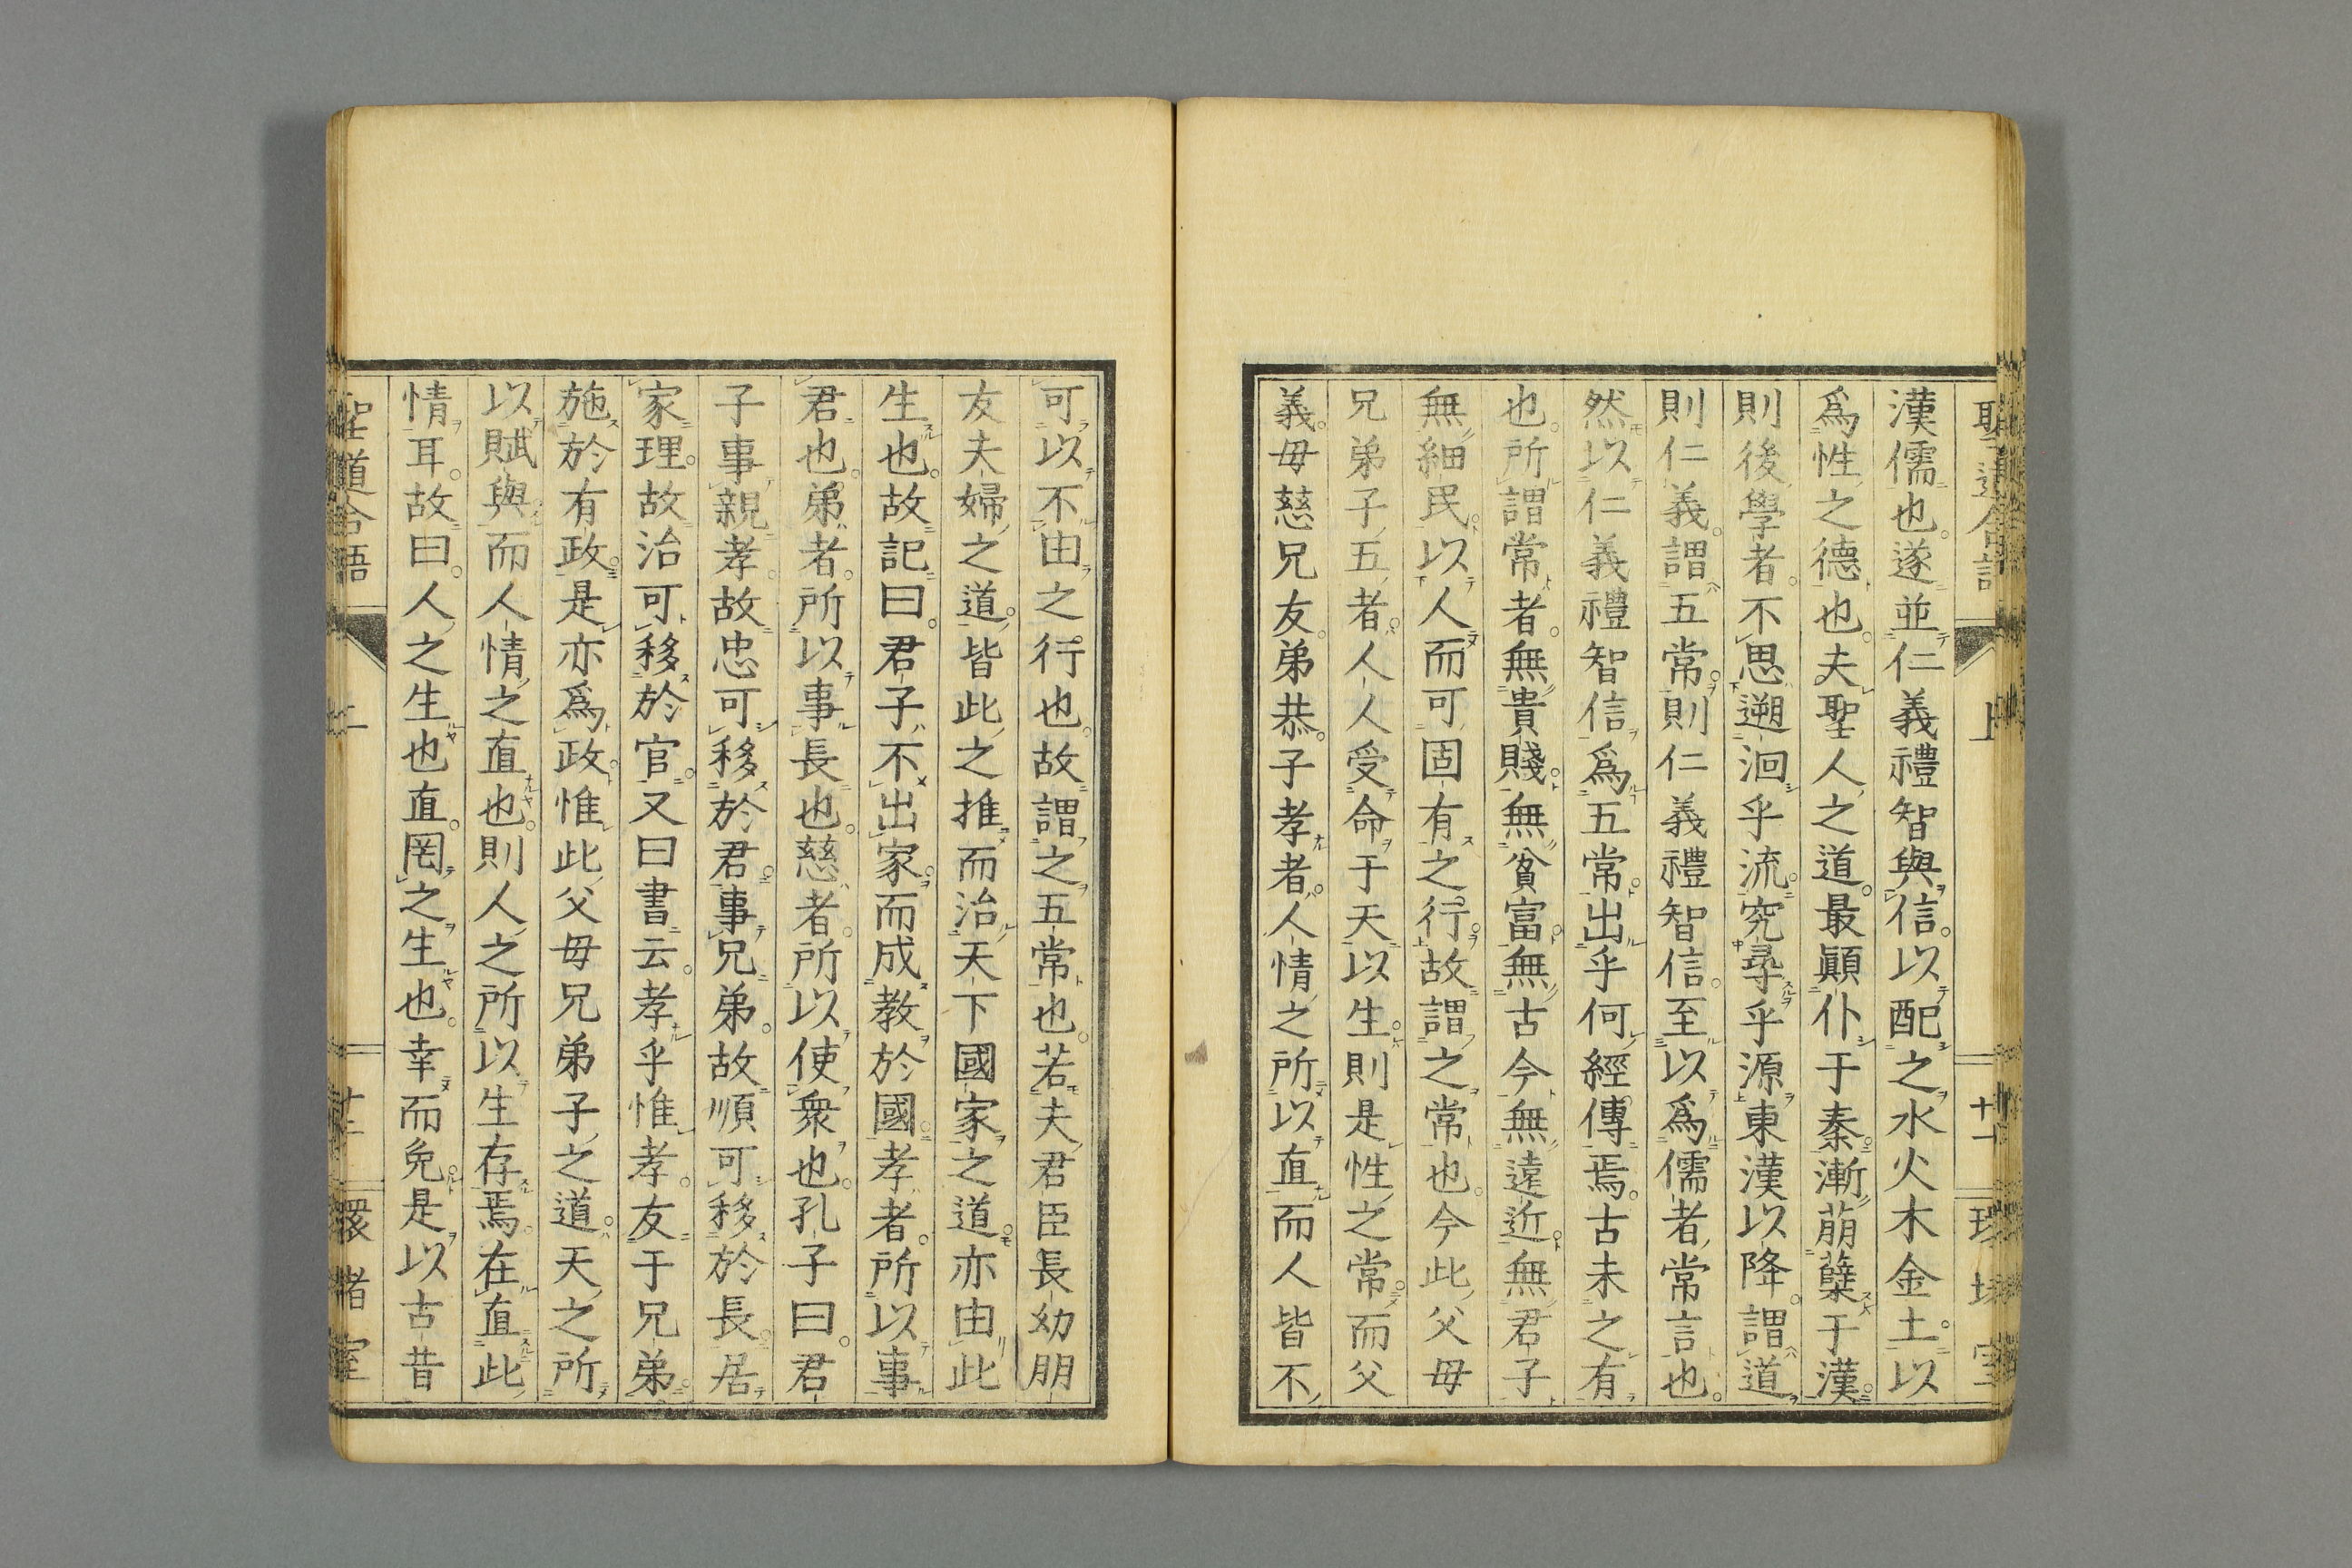 漢儒也。遂並仁義禮智與信。以配之水火木金土。以
爲性之德也。夫聖人之道。最顚仆于秦。漸萠蘖于漢。
則後學者。不思遡洄乎流。究尋乎源。東漢以降。謂道
則仁義。謂五常。則仁義禮智信。至以爲儒者常言也。
然以仁義禮智信爲五常。出乎何經傳焉。古未之有
也。所謂常者。無貴賤。無貧富。無古今。無遠近。無君子
無細民。以人而可固有之行。故謂之常也。今此父母
兄弟子五者。人人受命于天以生。則是性之常。而父
義。母慈兄友。弟恭。子孝者。人情之所以直而人皆不
可以不由之行也。故謂之五常也。若夫君臣長幼朋
友夫婦之道。皆此之推而治天下國家之道。亦由此
生也。故記曰。君子不出家。而成教於國。孝者。所以事
君也。弟者。所以事長也。慈者。所以使衆也。孔子曰。君
子事親孝。故忠可移於君。事兄弟。故順可移於長。居
家理。故治可移於官。又曰書云。孝乎惟孝。友于兄弟。
施於有政。是亦爲政。惟此父母兄弟子之道。天之所
以賦與而人情之直也。則人之所以生存焉。在直此
情耳。故曰。人之生也直。罔之生也。幸而免。是以古昔
聖道合語 上 十一 環堵室
聖道合語 上 十二 環堵室